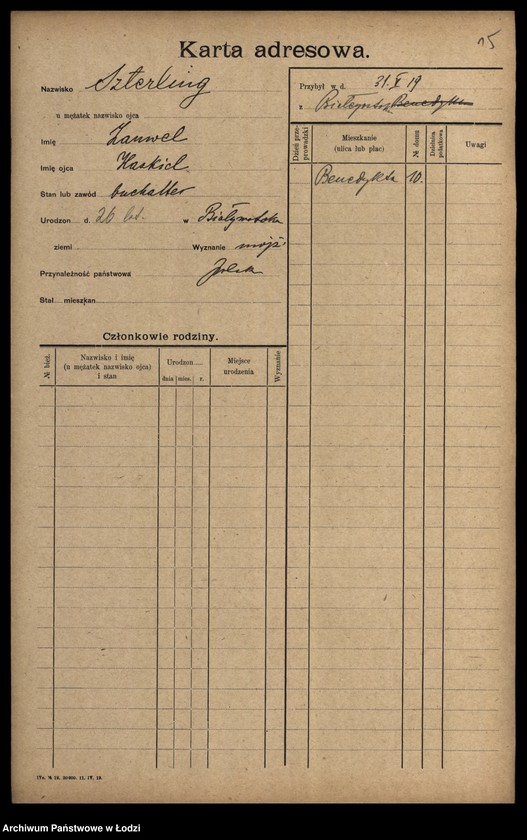 15
Karta adresowa.
Nazwisko Szterling
u mężatek nazwisko ojca
Imię Zanwel
Imię ojca Haskiel
Stan lub zawód buchalter
Urodzon d. 26 lat. w Białymstoku
ziemi Wyznanie mojż
Przynależność państwowa Polska
Stał. mieszkan
Członkowie rodziny.
№ bież.
Nazwisko i imię
(u mężatek nazwisko ojca)
i stan
Urodzon
dnia mies. r.
Miejsce
urodzenia
Wyznanie
Przybył w d. 31.X 19
z Białegostoku Benedykta
Dzień prze-
prowadzki
Mieszkanie
(ulica lub plac)
№ domu
Dzielnica
podatkowa
Uwagi
Benedykta 10.
Archiwum Państwowe w Łodzi